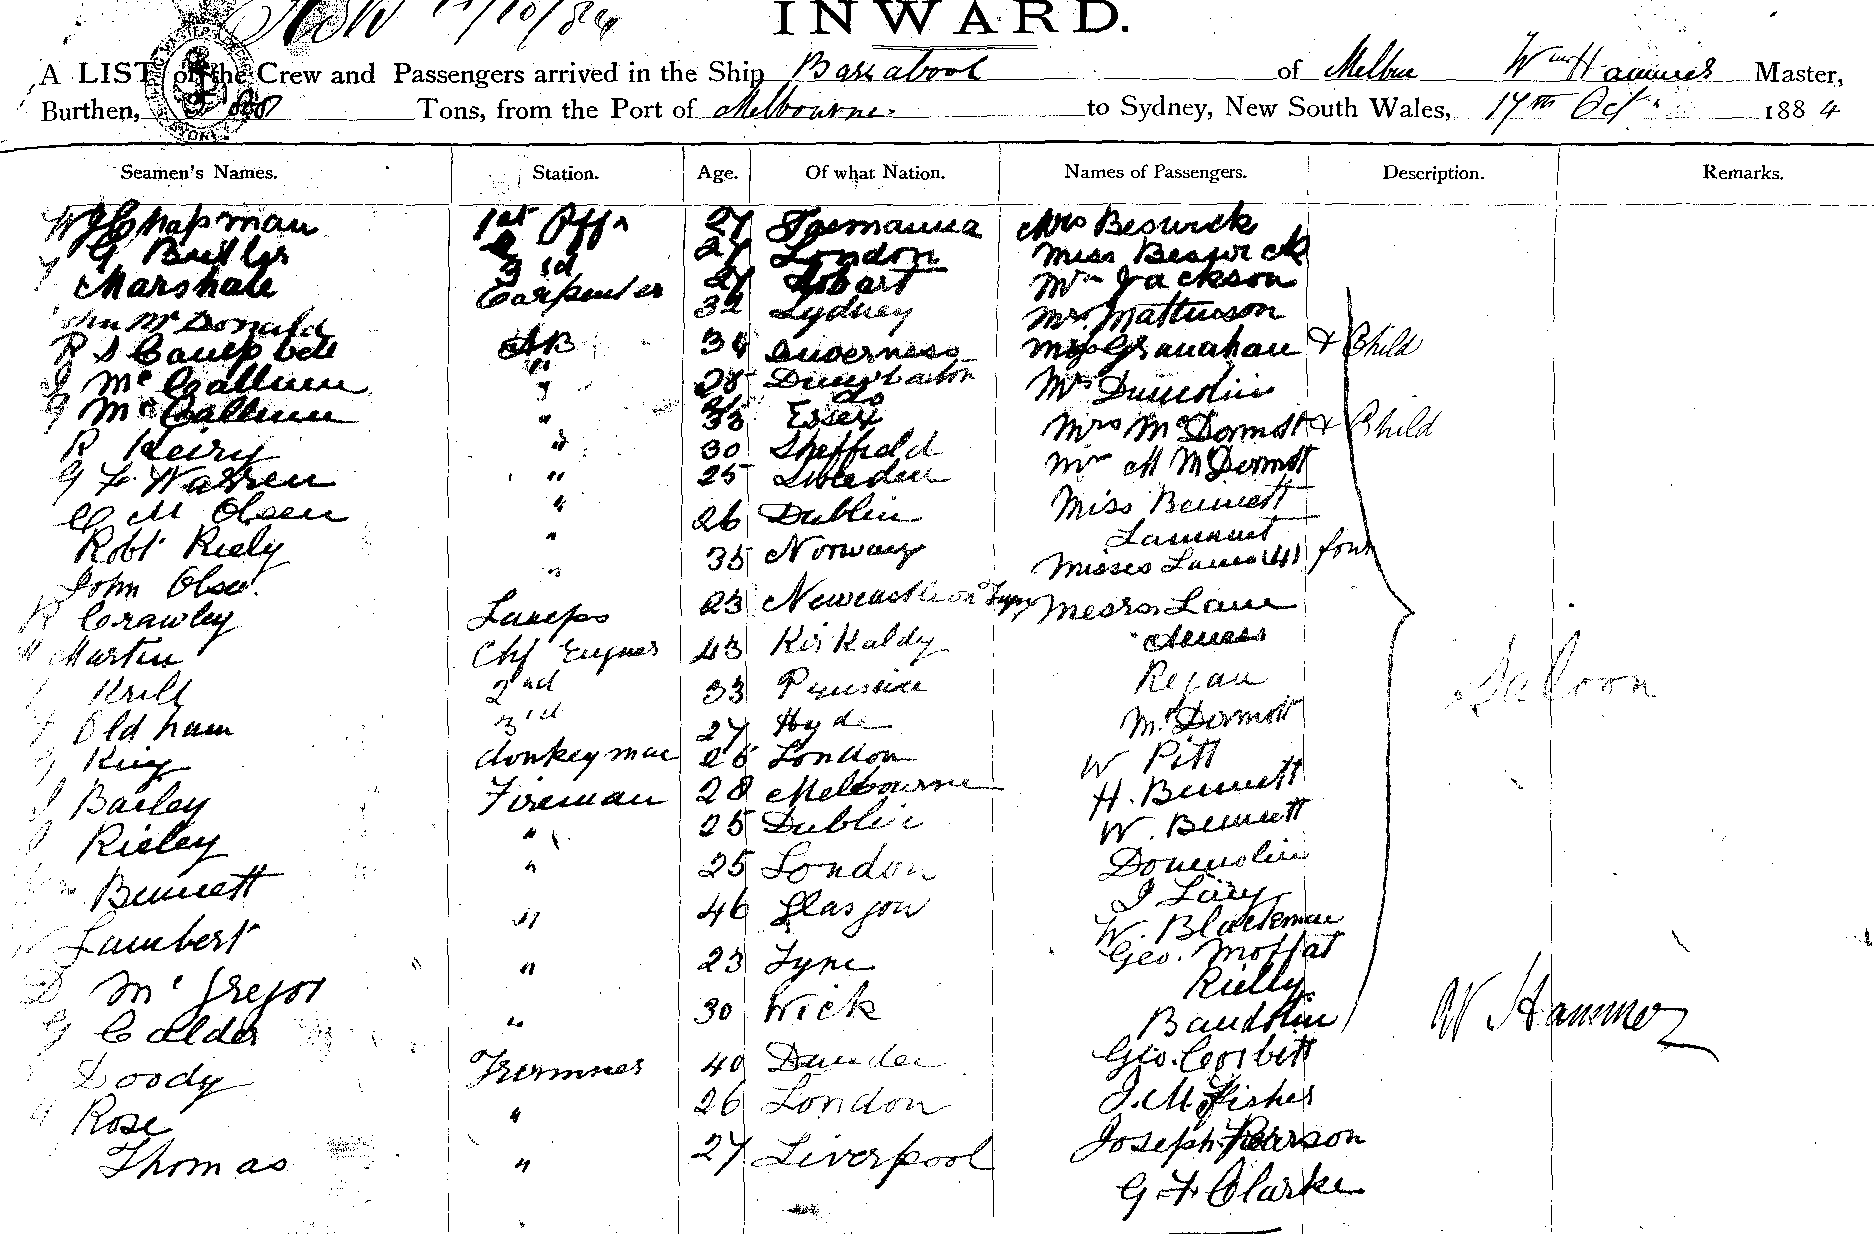 INWARD.
A LIST of the Crew and Passengers arrived in the Ship Barrabool of Melbne Wm Hammer Master,
Burthen, Tons, from the Port of Melbourne. to Sydney, New South Wales, 17th Octr 1884
Seamen's Names. Station. Age. Of what Nation. Names of Passengers. Description. Remarks.
W J Chapman 1st Offr 27 Tasmania Mrs Beswick
G Butler 2 27 London Miss Beswick
Marshall 3rd 27 Hobart Mr Jackson
John McDonald Carpenter 32 Sydney Mr. Mattinson
R S Campbell AB 38 Inverness Mrs Granahan & Child
J McCallum " 28 Dumbarton Mr Dumolin
G McCallum " do Mrs McDermott & Child
R Keiry " 33 Essex Mr M McDermott
G F. Warren " 30 Sheffield Miss Bennett
C M Olsen " 25 Sweden Lamount
Robt Riely " 26 Dublin Misses Lane (4) four
John Olsen " 35 Norway Messrs Lane
R Crawley Lamps 23 Newcastle on Tyne
Martin Chf Enginer 43 Kirkaldy Regan
Krill 2nd 33 Prussia McDermott
Oldham 3rd 27 Hyde W Pitt
King donkeyman 26 London H. Bennett
J Bailey Fireman 28 Melbourne W. Bennett
J Rieley " 25 Dublin Domenolin
Bennett " 25 London J Lacy
Lambert " 46 Glasgow W. Blackman
D McGregor " 23 Tyne Geo. Moffat
G Calder " 30 Wick Rielly
Doody Trimmer 40 Dundee Baudolin
G Rose " 26 London Geo. Corbett
Thomas " 27 Liverpool J. M. Fisher
Joseph Pearson
G F. Clarke
Saloon
W Hammer